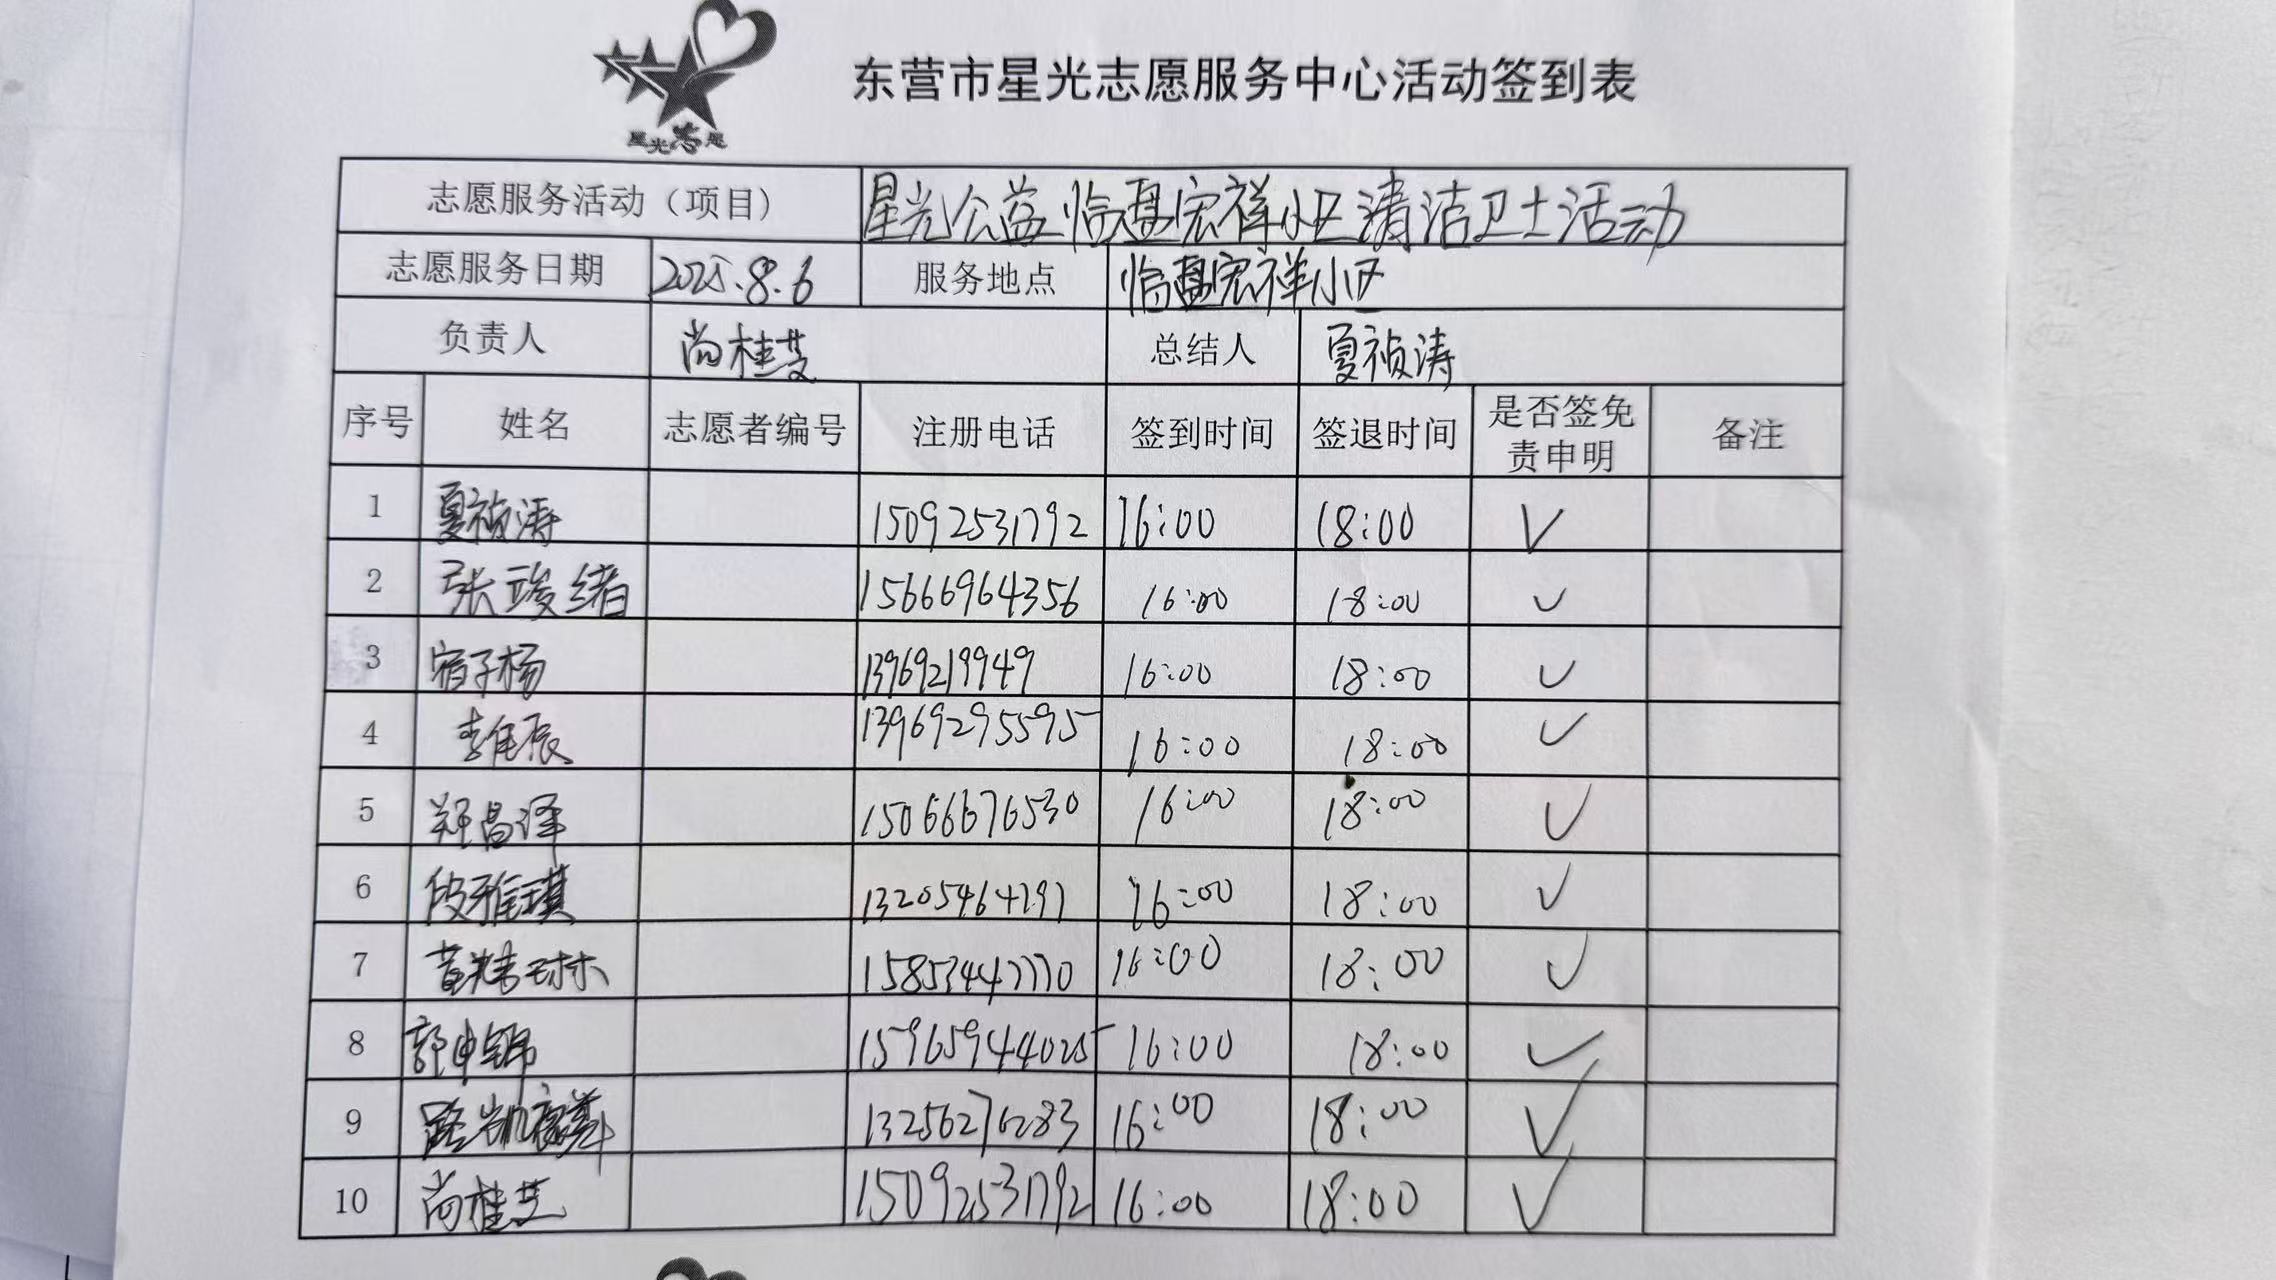 星光志愿
东营市星光志愿服务中心活动签到表
志愿服务活动（项目） 星光公益临盘宏祥小区清洁卫士活动
志愿服务日期 2025.8.6 服务地点 临盘宏祥小区
负责人 尚桂芝 总结人 夏祯涛
序号 姓名 志愿者编号 注册电话 签到时间 签退时间 是否签免责申明 备注
1 夏祯涛 15092531792 16:00 18:00 √
2 张竣绪 15666964356 16:00 18:00 √
3 宿子杨 13969219949 16:00 18:00 √
4 李 辰 13969295595 16:00 18:00 √
5 郑昌泽 15066676530 16:00 18:00 √
6 段雅琪 16:00 18:00 √
7 15853447770 16:00 18:00 √
8 郭申锦 15965944025 16:00 18:00 √
9 路凯 13256276283 16:00 18:00 √
10 尚桂芝 15092531792 16:00 18:00 √